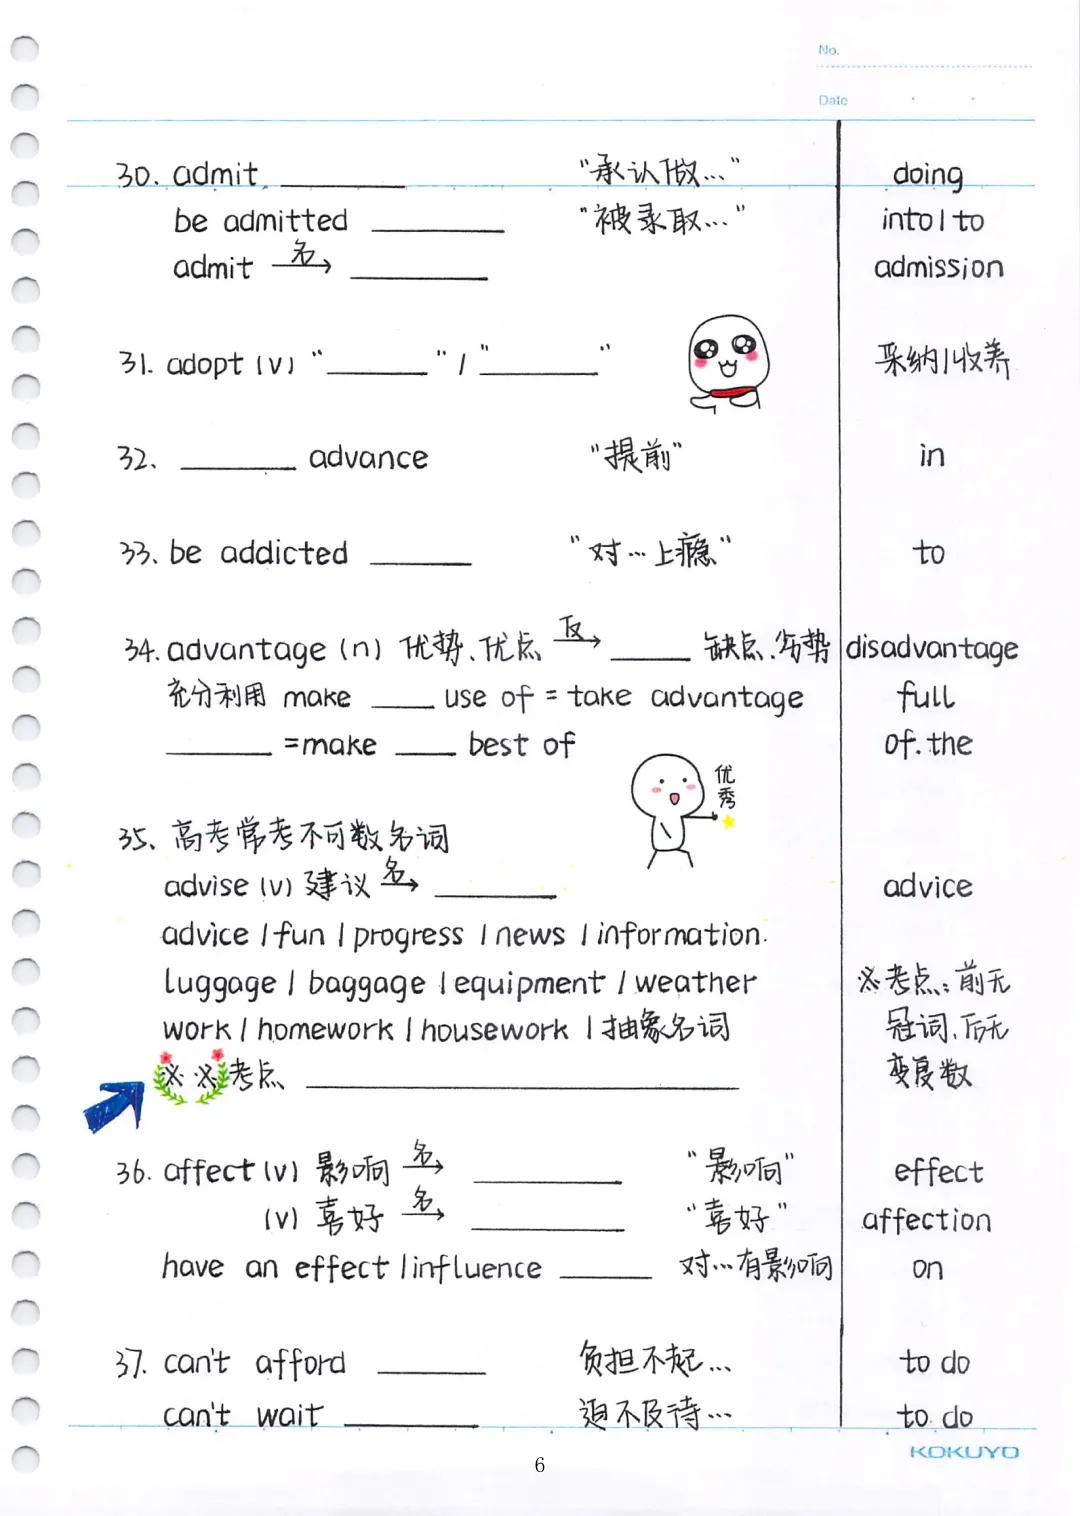 No.
Date
30. admit ______ "承认做…" doing
be admitted ______ "被录取…" into / to
admit 名→ ______ admission
31. adopt (v) "______" / "______" 采纳 / 收养
32. ______ advance "提前" in
33. be addicted ______ "对…上瘾" to
34. advantage (n) 优势、优点 反→ ______ 缺点、劣势 disadvantage
充分利用 make ____ use of = take advantage full
______ = make ____ best of of. the
优秀
35. 高考常考不可数名词
advise (v) 建议 名→ ______ advice
advice / fun / progress / news / information.
luggage / baggage / equipment / weather ※考点: 前无
work / homework / housework / 抽象名词 冠词、后无
※ ※考点 ______ 变复数
36. affect (v) 影响 名→ ______ "影响" effect
(v) 喜好 名→ ______ "喜好" affection
have an effect / influence ______ 对…有影响 on
37. can't afford ______ 负担不起… to do
can't wait ______ 迫不及待… to do
KOKUYO
6